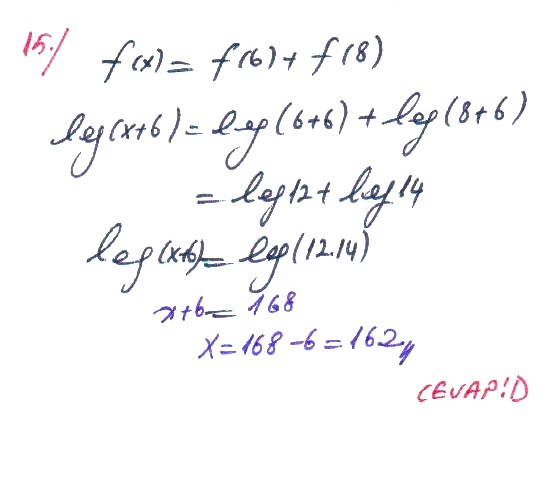 15./ f(x) = f(6) + f(8)
log(x+6) = log(6+6) + log(8+6)
= log12 + log14
log(x+6) = log(12.14)
x+6 = 168
x = 168 - 6 = 162//
CEVAP: D